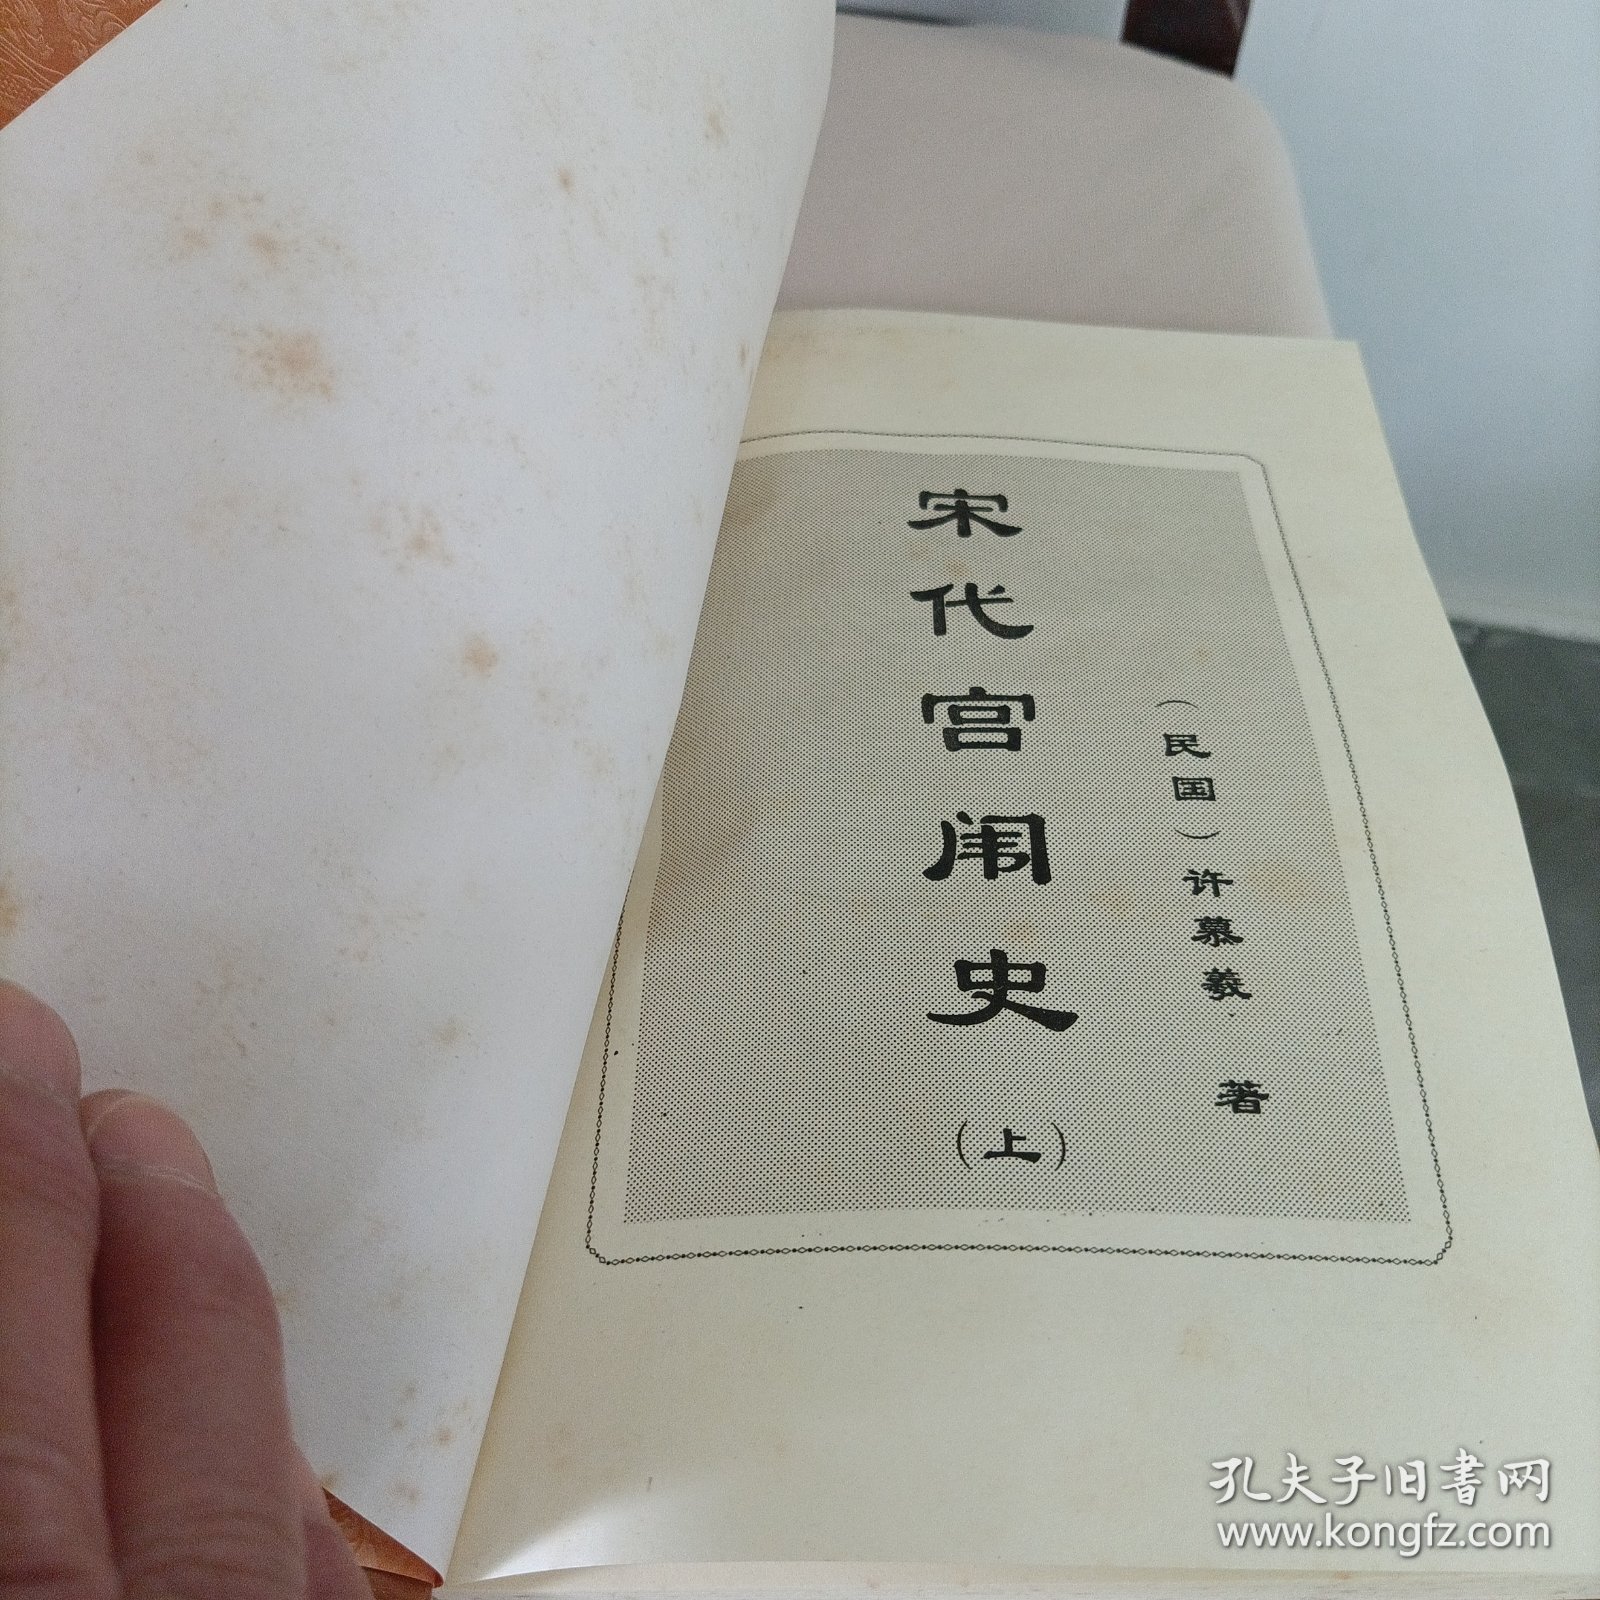 （民国）许慕羲·著
宋代宫闱史
（上）
孔夫子旧书网
www.kongfz.com